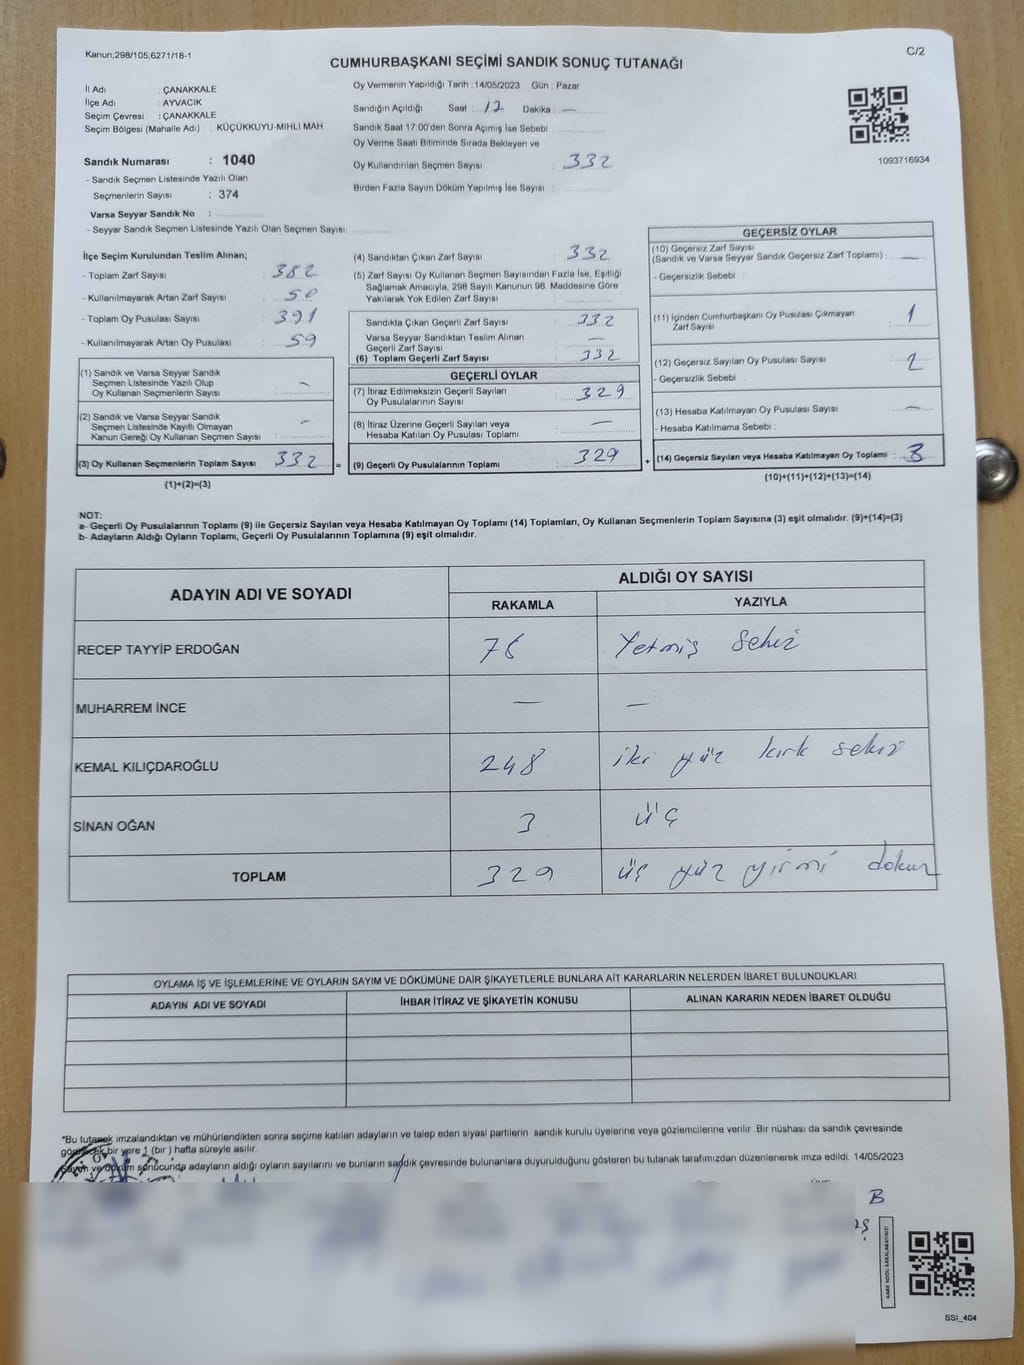 Kanun;298/105,6271/18-1
C/2
CUMHURBAŞKANI SEÇİMİ SANDIK SONUÇ TUTANAĞI
İl Adı : ÇANAKKALE
İlçe Adı : AYVACIK
Seçim Çevresi : ÇANAKKALE
Seçim Bölgesi (Mahalle Adı) : KÜÇÜKKUYU-MIHLI MAH.
Sandık Numarası : 1040
- Sandık Seçmen Listesinde Yazılı Olan
Seçmenlerin Sayısı : 374
Varsa Seyyar Sandık No :
- Seyyar Sandık Seçmen Listesinde Yazılı Olan Seçmen Sayısı:
Oy Vermenin Yapıldığı Tarih : 14/05/2023 Gün : Pazar
Sandığın Açıldığı Saat : 17 Dakika : —
Sandık Saat 17:00'den Sonra Açılmış İse Sebebi :
Oy Verme Saati Bitiminde Sırada Bekleyen ve
Oy Kullandırılan Seçmen Sayısı : 332
Birden Fazla Sayım Döküm Yapılmış İse Sayısı :
1093716934
İlçe Seçim Kurulundan Teslim Alınan;
- Toplam Zarf Sayısı : 382
- Kullanılmayarak Artan Zarf Sayısı : 50
- Toplam Oy Pusulası Sayısı : 391
- Kullanılmayarak Artan Oy Pusulası : 59
(1) Sandık ve Varsa Seyyar Sandık
Seçmen Listesinde Yazılı Olup
Oy Kullanan Seçmenlerin Sayısı : —
(2) Sandık ve Varsa Seyyar Sandık
Seçmen Listesinde Kayıtlı Olmayan
Kanun Gereği Oy Kullanan Seçmen Sayısı : —
(3) Oy Kullanan Seçmenlerin Toplam Sayısı : 332 =
(1)+(2)=(3)
(4) Sandıktan Çıkan Zarf Sayısı : 332
(5) Zarf Sayısı Oy Kullanan Seçmen Sayısından Fazla İse, Eşitliği
Sağlamak Amacıyla, 298 Sayılı Kanunun 98. Maddesine Göre
Yakılarak Yok Edilen Zarf Sayısı :
Sandıkta Çıkan Geçerli Zarf Sayısı : 332
Varsa Seyyar Sandıktan Teslim Alınan
Geçerli Zarf Sayısı : —
(6) Toplam Geçerli Zarf Sayısı : 332
GEÇERLİ OYLAR
(7) İtiraz Edilmeksizin Geçerli Sayılan
Oy Pusulalarının Sayısı : 329
(8) İtiraz Üzerine Geçerli Sayılan veya
Hesaba Katılan Oy Pusulası Toplamı : —
(9) Geçerli Oy Pusulalarının Toplamı : 329 +
GEÇERSİZ OYLAR
(10) Geçersiz Zarf Sayısı
(Sandık ve Varsa Seyyar Sandık Geçersiz Zarf Toplamı) : —
- Geçersizlik Sebebi :
(11) İçinden Cumhurbaşkanı Oy Pusulası Çıkmayan
Zarf Sayısı : 1
(12) Geçersiz Sayılan Oy Pusulası Sayısı : 2
- Geçersizlik Sebebi :
(13) Hesaba Katılmayan Oy Pusulası Sayısı : —
- Hesaba Katılmama Sebebi :
(14) Geçersiz Sayılan veya Hesaba Katılmayan Oy Toplamı : 3
(10)+(11)+(12)+(13)=(14)
NOT:
a- Geçerli Oy Pusulalarının Toplamı (9) ile Geçersiz Sayılan veya Hesaba Katılmayan Oy Toplamı (14) Toplamları, Oy Kullanan Seçmenlerin Toplam Sayısına (3) eşit olmalıdır. (9)+(14)=(3)
b- Adayların Aldığı Oyların Toplamı, Geçerli Oy Pusulalarının Toplamına (9) eşit olmalıdır.
ADAYIN ADI VE SOYADI
ALDIĞI OY SAYISI
RAKAMLA YAZIYLA
RECEP TAYYİP ERDOĞAN 78 Yetmiş Sekiz
MUHARREM İNCE — —
KEMAL KILIÇDAROĞLU 248 iki yüz kırk sekiz
SİNAN OĞAN 3 üç
TOPLAM 329 üç yüz yirmi dokuz
OYLAMA İŞ VE İŞLEMLERİNE VE OYLARIN SAYIM VE DÖKÜMÜNE DAİR ŞİKAYETLERLE BUNLARA AİT KARARLARIN NELERDEN İBARET BULUNDUKLARI
ADAYIN ADI VE SOYADI İHBAR İTİRAZ VE ŞİKAYETİN KONUSU ALINAN KARARIN NEDEN İBARET OLDUĞU
*Bu tutanak imzalandıktan ve mühürlendikten sonra seçime katılan adayların ve talep eden siyasi partilerin sandık kurulu üyelerine veya gözlemcilerine verilir .Bir nüshası da sandık çevresinde
görülecek bir yere 1 (bir ) hafta süreyle asılır.
Sayım ve döküm sonucunda adayların aldığı oyların sayılarını ve bunların sandık çevresinde bulunanlara duyurulduğunu gösteren bu tutanak tarafımızdan düzenlenerek imza edildi. 14/05/2023
B
KARE KODU KARALAMAYINIZ!
SSI_404